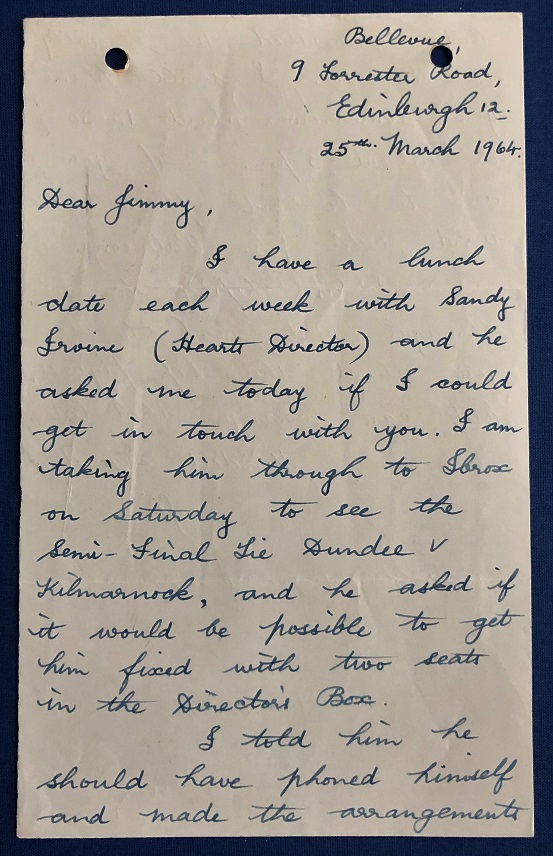 Bellevue,
9 Forrester Road,
Edinburgh 12.
25th. March 1964.
Dear Jimmy,
I have a lunch
date each week with Sandy
Irvine (Hearts Director) and he
asked me today if I could
get in touch with you. I am
taking him through to Ibrox
on Saturday to see the
Semi-Final Tie Dundee V
Kilmarnock, and he asked if
it would be possible to get
him fixed with two seats
in the Director's Box.
I told him he
should have phoned himself
and made the arrangements